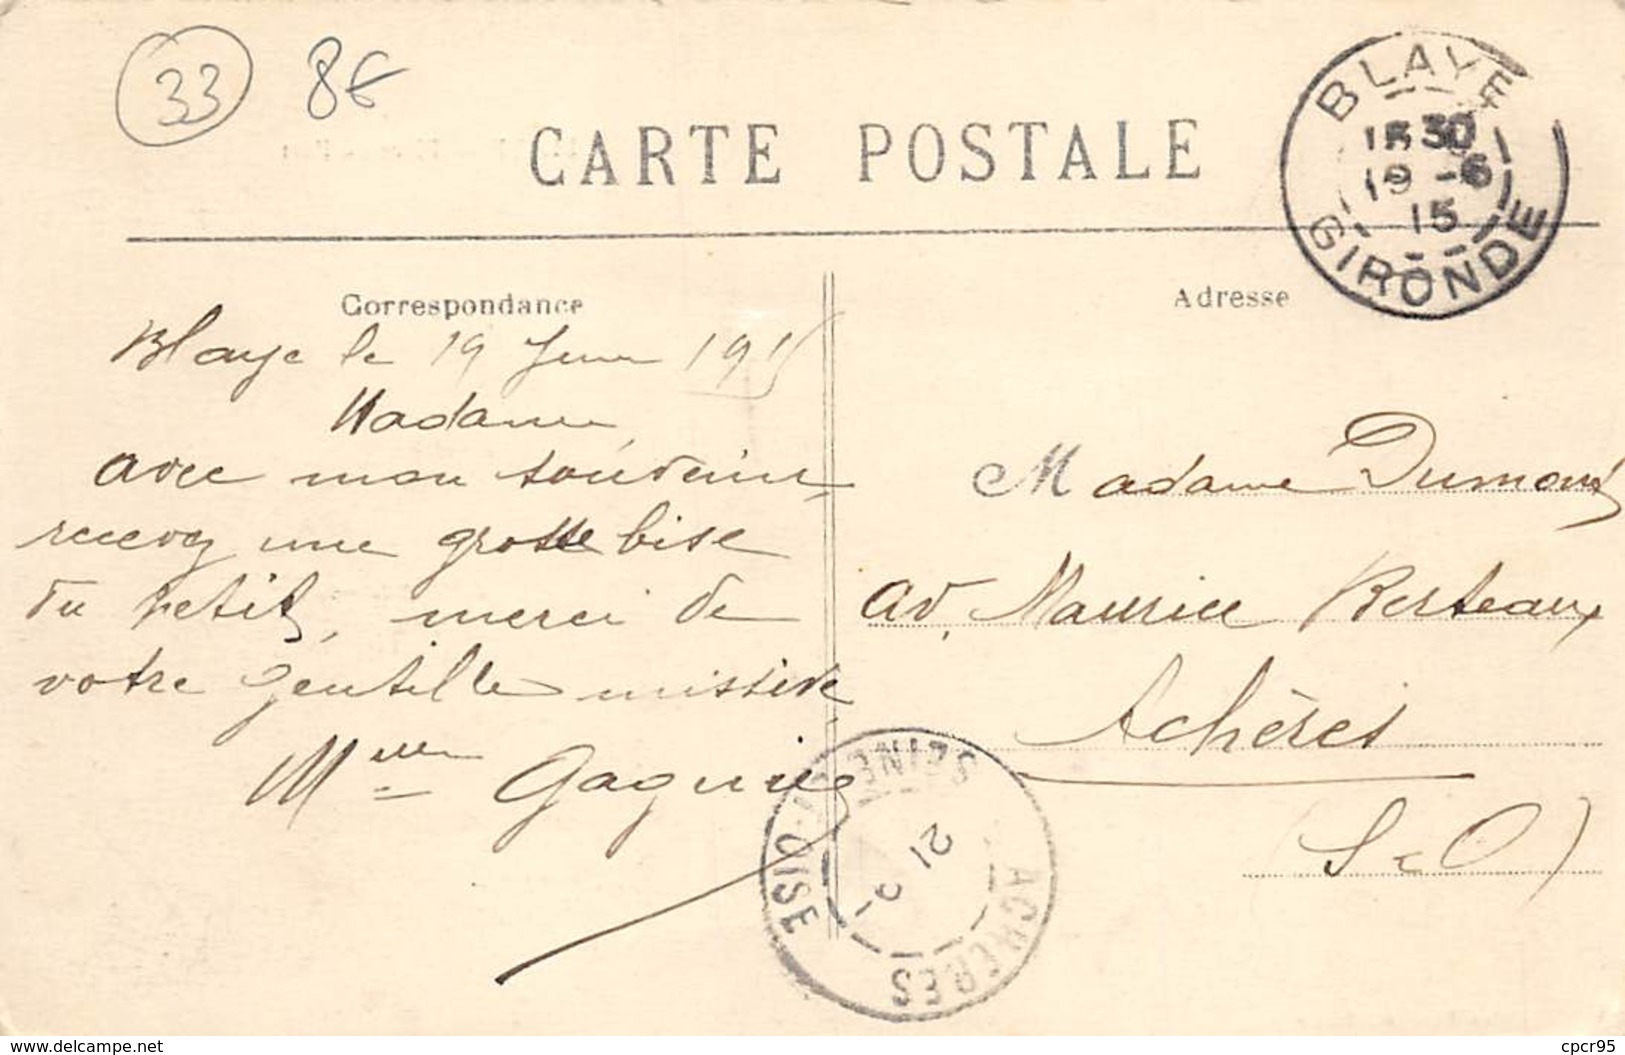 33 8€
CARTE POSTALE
BLAYE
15 30
19 - 6
15
GIRONDE
Correspondance
Adresse
Blaye le 19 Juin 1915
Madame,
avec mon souvenir,
recevez une grosse bise
du petit, merci de
votre gentille missive,
Mlle
Madame Dumont
av. Maurice Berteaux
Achères
(S & O)
ACHERES
SEINE
OISE
21
15
www.delcampe.net
cpcr95